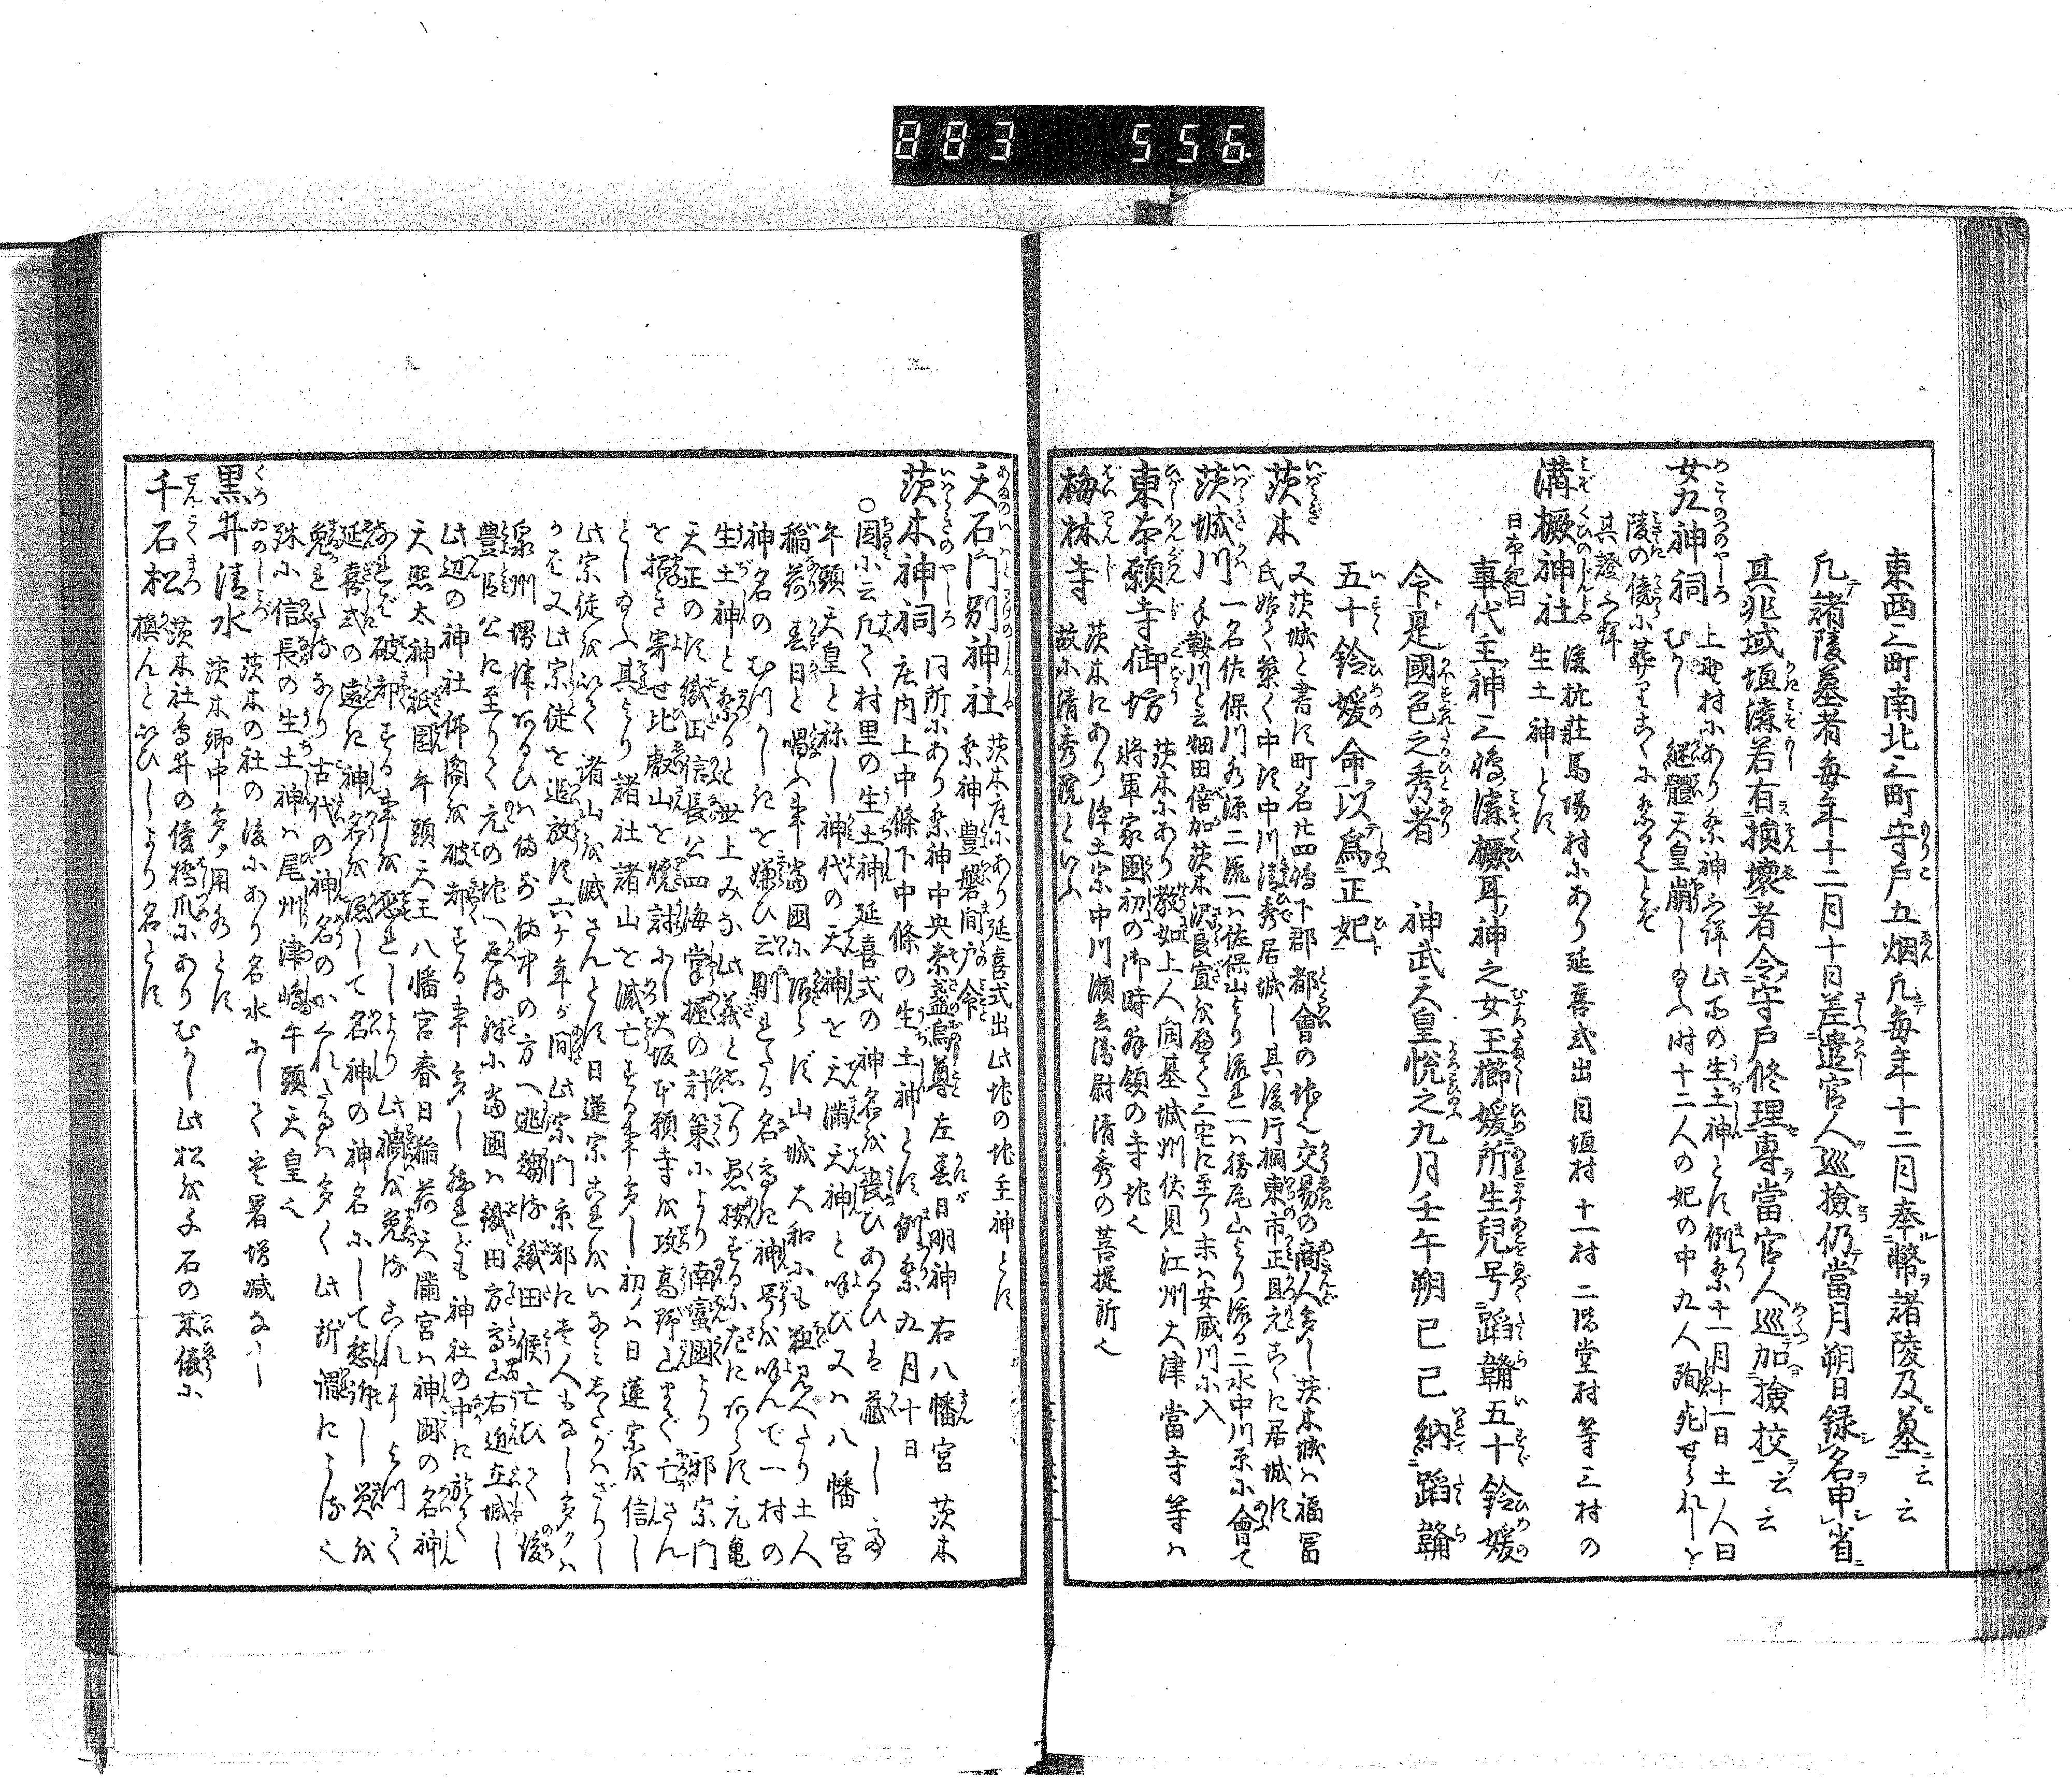 883 556.
東西三町南北三町守戸五烟凡毎年十二月奉幣諸陵及墓云云
凡諸陵墓者毎年十二月十日差遣官人巡撿仍當月朔日録名申省
其兆域垣溝若有損壊者令守戸修理專當官人巡加撿挍云云
女九神祠 上野村にあり祭神不詳此所の生土神とす例祭十一月十一日土人曰
むかし 継體天皇崩し給ふ時十二人の妃の中九人殉死せられしを
陵の傍に葬りこゝに祭るとぞ
其證不詳
溝橛神社 溝杭莊馬場村にあり延喜式出目垣村十一村二階堂村等三村の
生土神とす
日本紀曰
事代主神三嶋溝橛耳神之女玉櫛媛所生兒号蹈鞴五十鈴媛
命是國色之秀者 神武天皇悦之九月壬午朔己巳納蹈鞴
五十鈴媛命以爲正妃
茨木 又茨城と書す町名廿四嶋下郡都會の地也交易の商人多し茨木城は福冨
氏始て築く中す中川清秀居城し其後片桐東市正且元こゝに居城す
茨城川 一名佐保川水源二流一は佐保山より流れ一は勝尾山より流る二水中川原に會て
鞍川と云細田倍加茨木沢良宜を歴て三宅に至り末は安威川に入
東本願寺御坊 茨木にあり教如上人開基城州伏見江州大津當寺等は
將軍家國初の御時拜領の寺地也
梅林寺 茨木にあり浄土宗中川瀬兵衛尉清秀の菩提所也
故に清秀院といふ
天石門別神社 茨木庄にあり延喜式出此地の地主神とす
祭神豊磐間戸命
茨木神祠 同所にあり祭神中央素盞烏尊左春日明神右八幡宮茨木
庄内上中條下中條の生土神とす例祭九月十日
○因に云凡て村里の生土神延喜式の神名を喪ひあるひは蔵し
牛頭天皇と称し神代の天神を天満天神と呼び又は八幡宮
稲荷春日と唱ふ事當國に限らず山城大和にも粗見へたり土人
神名のむつかしきを嫌ひ云馴れたる名高き神号を呼んで一村の
生土神と祭ると世上みな此義と思へり愚按ずるに左にあらず元亀
天正の頃織田信長公四海掌握の計策により南蛮國より邪宗門
を招き寄せ比叡山を焼討にし大坂本願寺を攻高野山まで亡さん
とし給ふ其より諸社諸山を滅亡する事多し初めは日蓮宗を信し
此宗徒を以て諸山を滅さんとす日蓮宗これをいなみしたがはざりし
かば又此宗徒を追放す六ケ年が間此宗門京都に壱人もなし多くは
泉州堺津あるひは備前備中の方へ逃避す織田候亡びて後
豊臣公に至りて元の地へ返る殊に當國は織田方高山右近在城し
此辺の神社佛閣を破却する事多し然れども神社の中に於て
天照太神祇園牛頭天王八幡宮春日稲荷天満宮は神國の名神
なれば破却する事を恐れしより此禍を免るこれによつて
延喜式の遠き神名を隠して名神の神名にして愁訴し災を
免れたるなり古代の神名のかくれたるは多く此所謂によるなり
殊に信長の生土神は尾州津嶋牛頭天皇也
黒井清水 茨木の社の後にあり名水にして寒暑増減なし
茨木郷中多く用水とす
千石松 茨木社鳥井の傍橋爪にありむかし此松を千石の米俵に
換んといひしより名とす